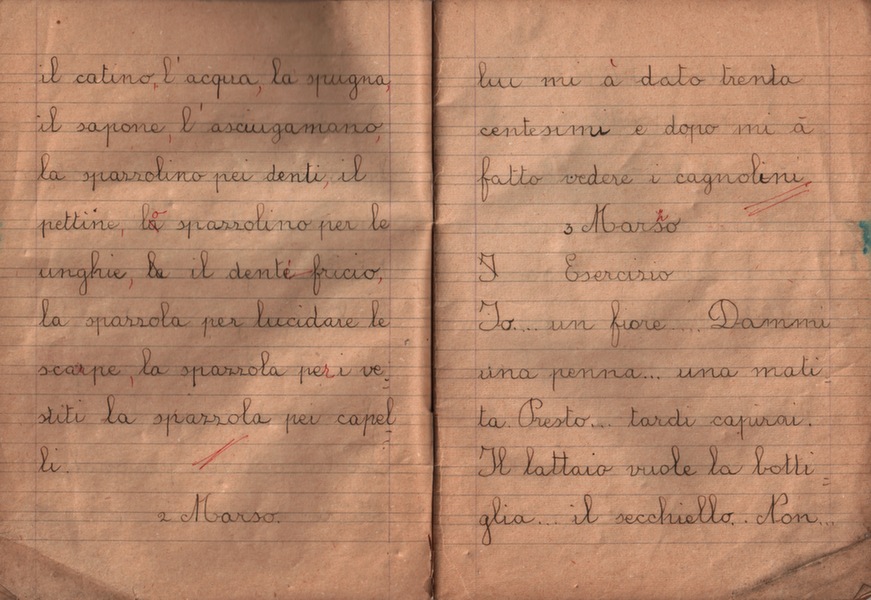 il catino, l'acqua, la spugna,
il sapone, l'asciugamano,
la spazzolino pei denti, il
pettine, lo spazzolino per le
unghie, il denti fricio,
la spazzola per lucidare le
scarpe, la spazzola per i ve=
stiti la spazzola pei capel=
li.
2 Marso.
lui mi à dato trenta
centesimi e dopo mi à
fatto vedere i cagnolini.
3 Marzo
I Esercizio
Io.... un fiore..... Dammi
una penna... una mati=
ta. Presto.... tardi capirai.
Il lattaio vuole la botti=
glia... il secchiello... Non...